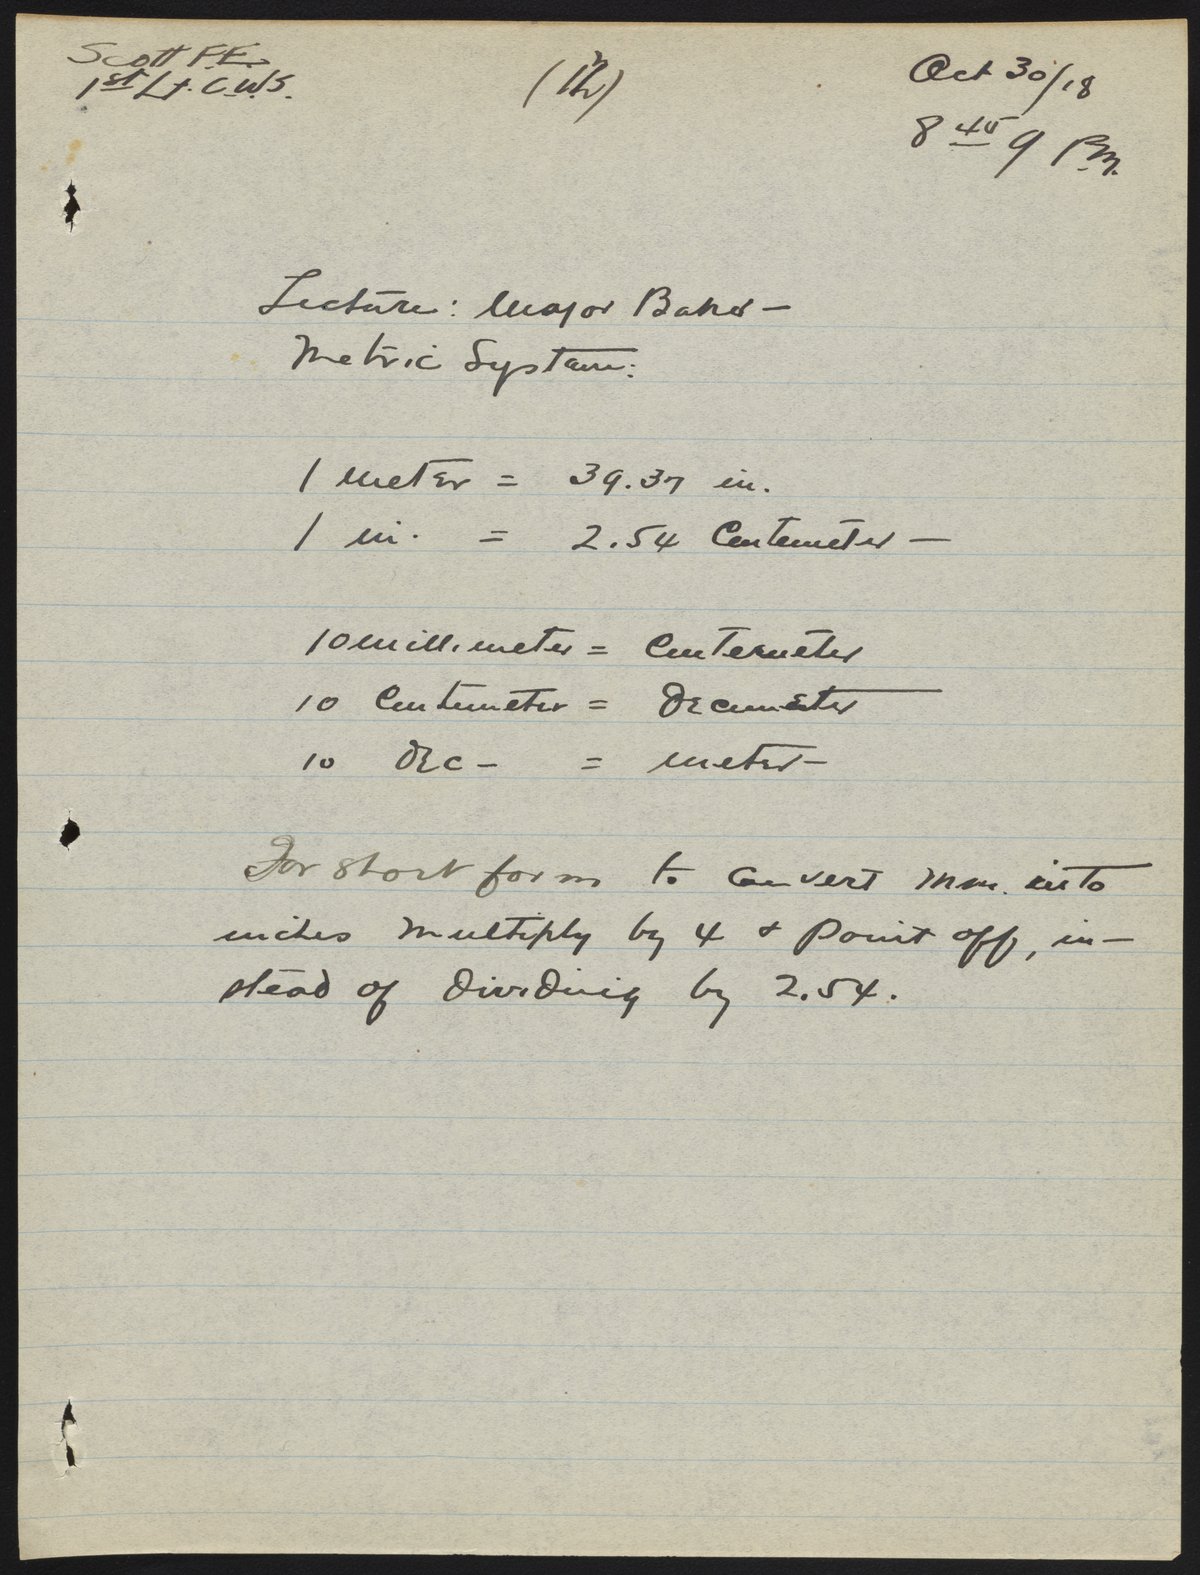 Scott F.E.
1st Lt. C.W.S.
Oct 30/18
8 45 9 P.M.
Lecture: Major Baker —
Metric System:
1 meter = 39.37 in.
1 in. = 2.54 Centemeter —
10 millimeter = Centemeter
10 Centemeter = Decemeter
10 Dec — = meter —
For short form to convert mm. into
inches multiply by 4 & point off, in-
stead of dividing by 2.54.